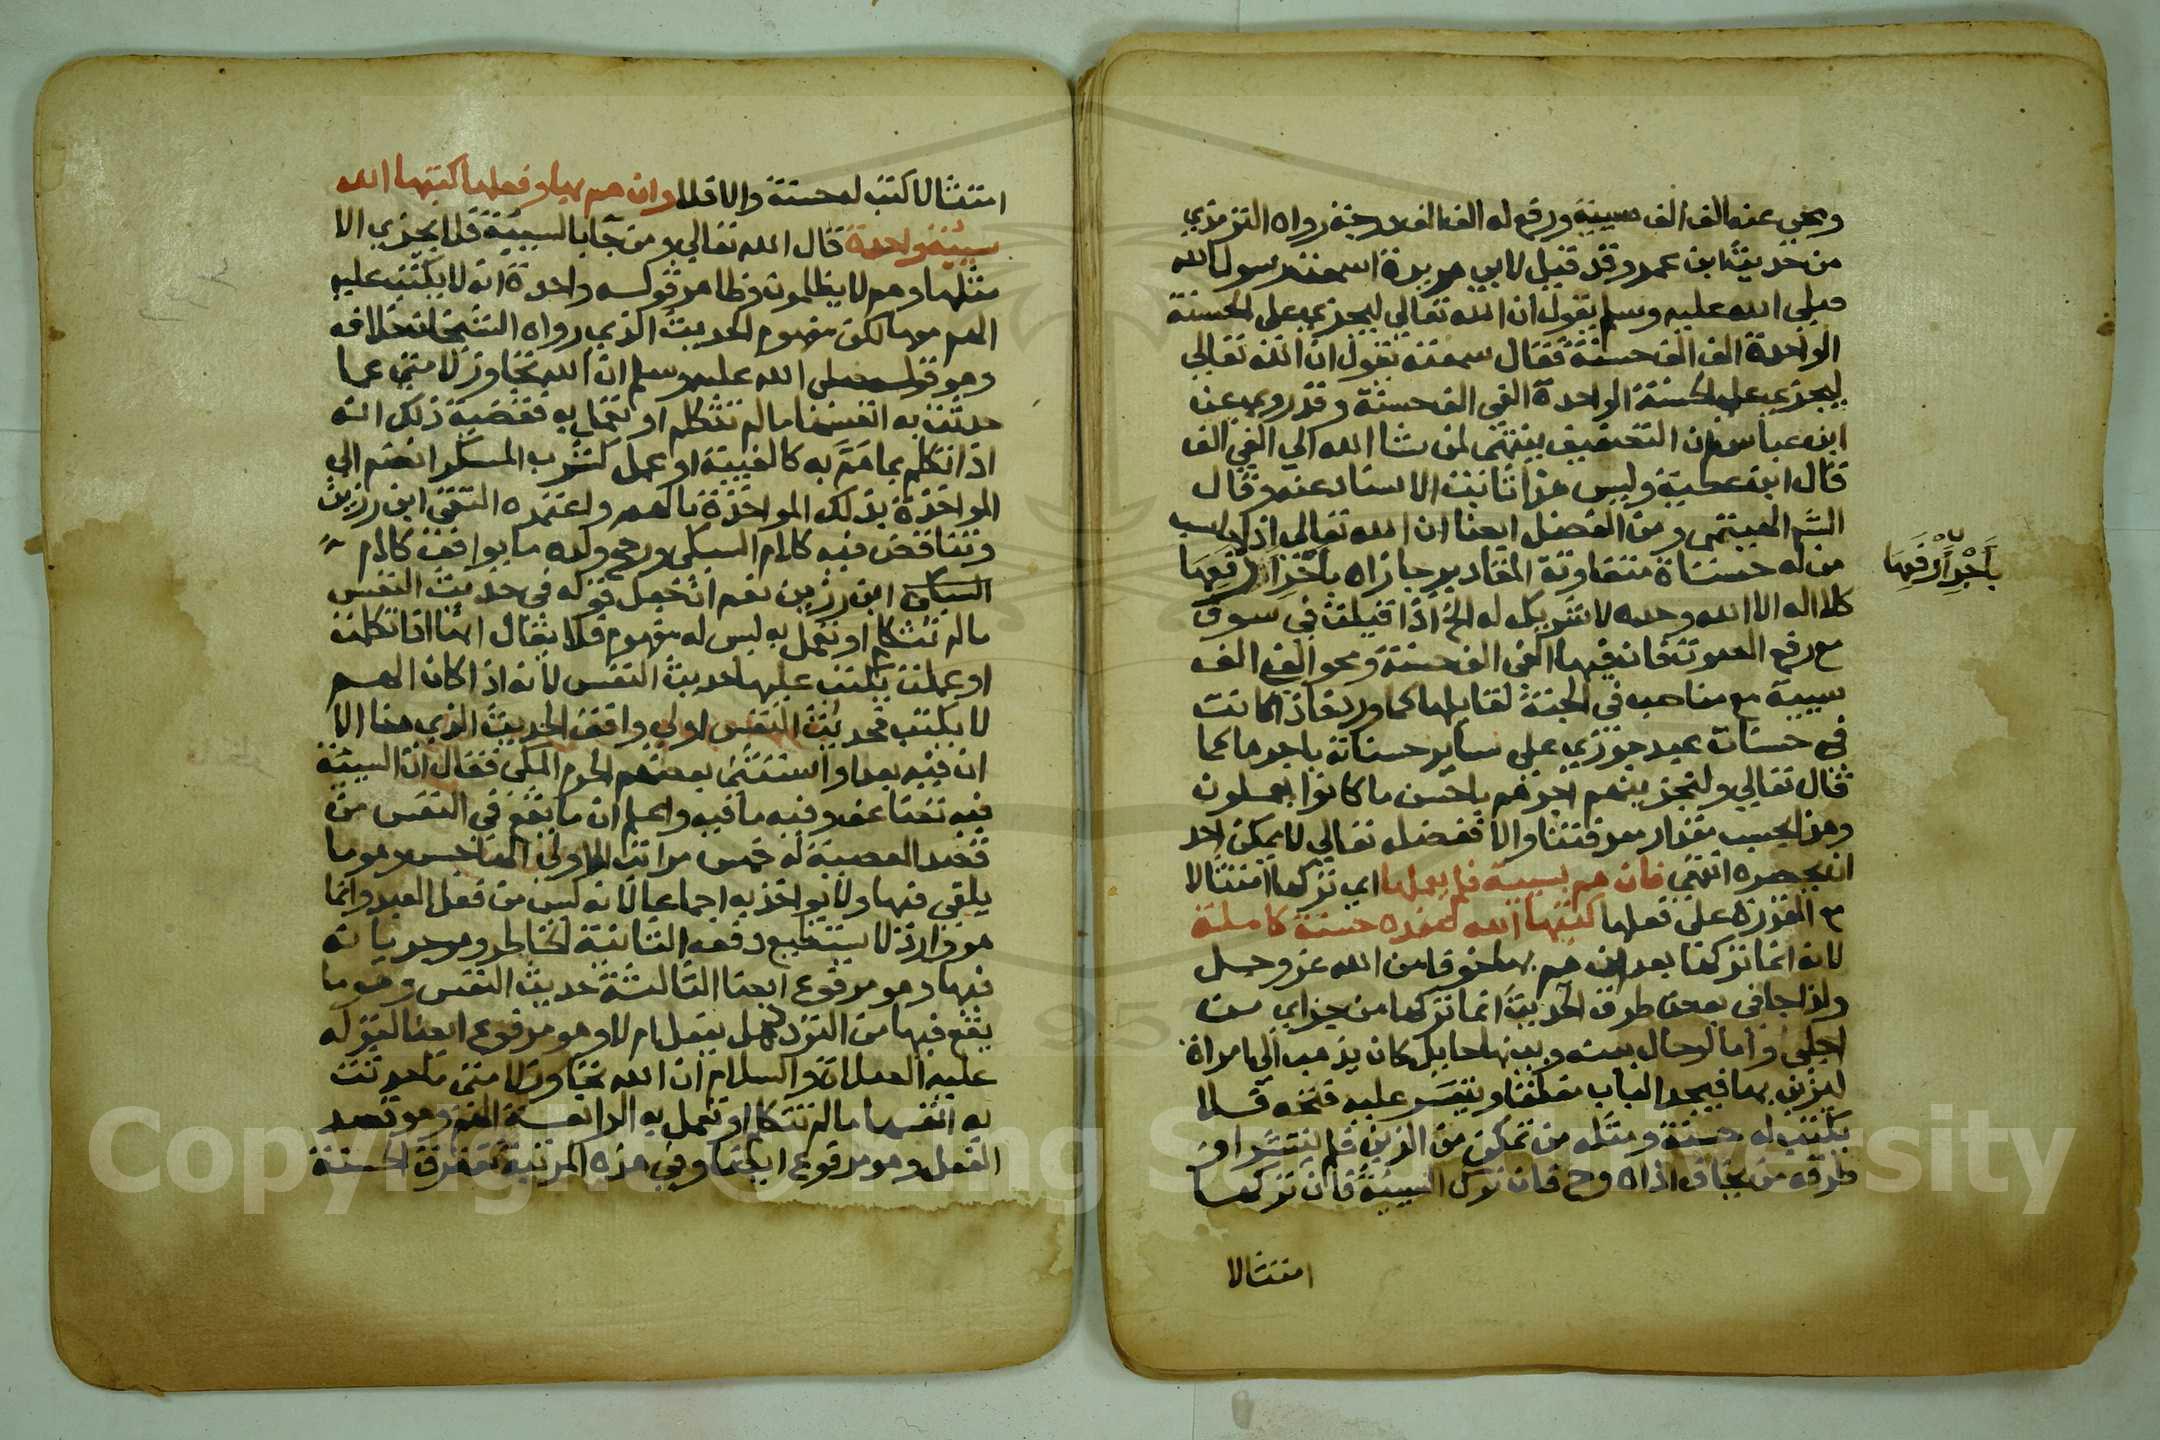 ويمحي عنه الف الف سيية ورفع له الف الف درجة رواه الترمذي
من حديث ابن عمر وقد قيل لابي هريرة اسمعت رسول الله
صلي الله عليه وسلم يقول ان الله تعالي ليجزي على الحسنة
الواحدة الف الف حسنة فقال سمعته يقول ان الله تعالي
ليجزي على الحسنة الواحدة الفي الف حسنة وقد روي عن
ابن عباس ان التضعيف ينتهي لمن شا الله الي الفي الف
قال ابن عطية وليس هذا ثابت الاسناد عنه وقال
الشم الهيتمي ومن الفضل ايضا ان الله تعالي اذا حاسب
من له حسناة متفاوتة المقادير جازاه باجر ارفعها
بأجر أرفعها
كلا اله الا الله وحده لا شريك له الخ اذا قيلت في سوق
مع رفع الصوت فان فيها الفي الف حسنة ومحو الفي الف
سيية مع مناصبه في الجنة لقايلها كما ورد فاذا كانت
في حسنات عبد جوزي على ساير حسناته باجرها كما
قال تعالي ولنجزينهم اجرهم باحسن ما كانوا يعملون
وهذا بحسب مقدار معرفتنا والا ففضله تعالي لا يمكن احد
ان يحصره انتهي فان هم بسيية فلم يعملها اي تركها امتثالا
مع القدرة على فعلها كتبها الله عنده حسنة كاملة
لانه انما تركها بعد ان هم بها خوفا من الله عز وجل
ولذا جا في بعض طرق الحديث انما تركها من جراي من
اجلي واما لو حال بينه وبينها حايل كان يذهب الي امراة
ليزني بها فيجد الباب مغلقا ويتعسر عليه فتحه فلا
يكتب له حسنة ومثله من تمكن من الزني فلم ينتشر او
طرقه من يخاف اذاه وح فان ترك السيية فان تركها
امتثالا
امتثالا كتب له حسنة والا فلا وان هم بها وفعلها كتبها الله
سيئة واحدة قال الله تعالي ومن جآ بالسيية فلا يجزي الا
مثلها وهم لا يظلمون وظاهر قوله واحدة انه لا يكتب عليه
الهم بها لكن مفهوم الحديث الذي رواه الشيخان خلافه
وهو قوله صلى الله عليه وسلم ان الله تجاوز لامتي عما
حدثت به انفسها ما لم تتكلم او تعمل به فقضية ذلك انه
اذا تكلم بما هم به كالغيبة او عمل كشرب المسكر انضم الي
المواخذة بذلك المواخذة بالهم واعتمده التقي ابن رزين
وتناقض فيه كلام السبكي ورجح ولده ما يوافق كلام
ابن رزين نعم ان جعل قوله في حديث النفس
ما لم تتكلم او تعمل به ليس له مفهوم فلا يقال انها اذا تكلمت
او عملت يكتب عليها حديث النفس لانه اذا كان الهم
لا يكتب فحديث النفس اولي وافق الحديث الذي هنا الا
ان فيه بعدا واستثني بعضهم الحرم المكي فقال ان السيئة
فيه تضاعف وفيه ما فيه واعلم ان ما يقع في النفس من
قصد المعصية له خمس مراتب الاولي الهاجس وهو ما
يلقي فيها ولا يواخذ به اجماعا لانه ليس من فعل العبد وانما
هو وارد لا يستطيع دفعه الثانية الخاطر وهو جريانه
فيها وهو مرفوع ايضا الثالثة حديث النفس وهو ما
يقع فيها من التردد هل يفعل ام لا وهو مرفوع ايضا لقوله
عليه الصلاة والسلام ان الله تجاوز لامتي ما حدثت
به انفسها ما لم تتكلم او تعمل به الرابعة الهم وهو قصد
الفعل وهو مرفوع ايضا وفي هذه المرتبة تفترق الحسنة
Copyright © King Saud University